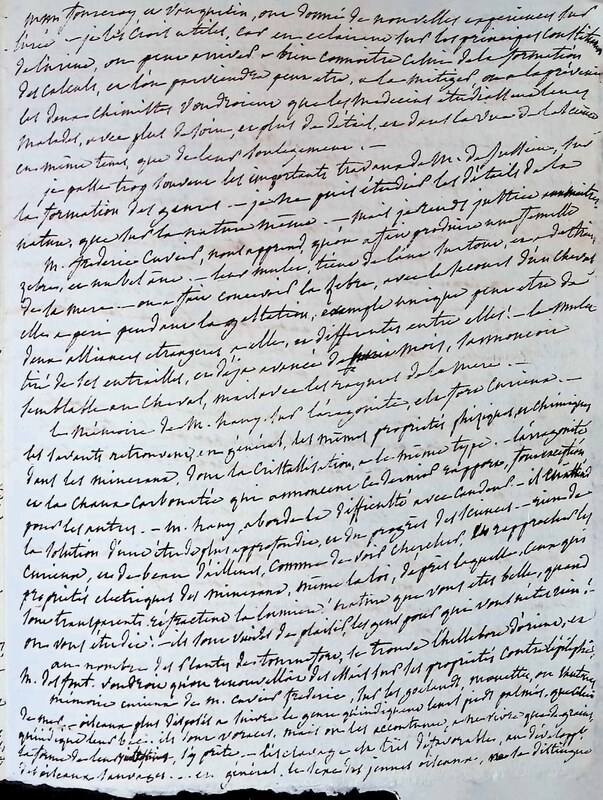 mm fourcroy et vauquelin, ont donné de nouvelles expériences sur
l'urée - je les crois utiles, car en éclairant sur les principes constituans
de l'urine, on peut arriver à bien connoitre celui de la formation
des calculs, et l'on parviendra peut etre, à les mitiger ou à les prévenir
les deux chimistes voudroient que les medecins étudiassent leurs
malades, avec plus de soin, et plus de détail, et dans la vue de la science
en même tems que de leur soulagement. -
je passe trop souvent les importants travaux de M. de Jussieu, sur
la formation des genres - je ne puis étudier les détails de la
nature, que sur la nature même - mais je rends justice
M. frederic Cuvier, nous apprend qu'on a fait produire une femelle
zebre, et un bel âne. - leur mulet, tient de l'âne surtout, et
de la mere - on a fait concevoir la zebre, avec le secours d'un cheval
elle a péri pendant la gestation, exemple unique peut etre de
deux alliances etrangeres à elle, et differentes entre elles! - le mulet
tiré de ses entrailles, et déjà avancé de mois, s'annoncoit
semblable au cheval, mais avec les rayures de la mere -
le Mémoire de M. hauy sur l'arragonite, est fort curieux. -
les savants retrouvent, en général, les mêmes propriétés physiques, et chimiques
dans les mineraux, dont la cristallisation, a le même type - l'arragonite
et la chaux carbonatée que annoncent ce dernier rapport, font exception
pour les autres. - M. hauy, aborde la difficulté avec candeur - il attend
la solution d'une étude plus approfondie, et du progrès des sciences - rien de
curieux, et de beau d'ailleurs, comme de voir chercher, rapprocher les
propriétés electriques des mineraux, même la loi, d'après laquelle, ceux qui
sont transparents réfractent la lumiere! o nature que vous etes belle, quand
on vous etudie! - ils sont variés de plaisir, les gens pour qui vous n'etes rien! -
au nombre des plantes de tournefort, se trouve l'hellebore d'orient, et
M. desfont. voudroit qu'on renouvellat des essais sur ses propriétés contre l'épilepsie
mémoire curieux de m. cuvier frederic, sur les goelands, mouette, ou
de mer - oiseaux plus disposés à suivre le genre qu'indiquent leurs pieds palmés, que celui
qu'indique leur bec. - ils sont voraces, mais on les accoutume, à ne vivre que de grains,
la forme de leurs s'y prête - l'esclavage est très défavorable, au dévelopt
des oiseaux sauvages... en général, le sexe des jeunes oiseaux, ne se distingue